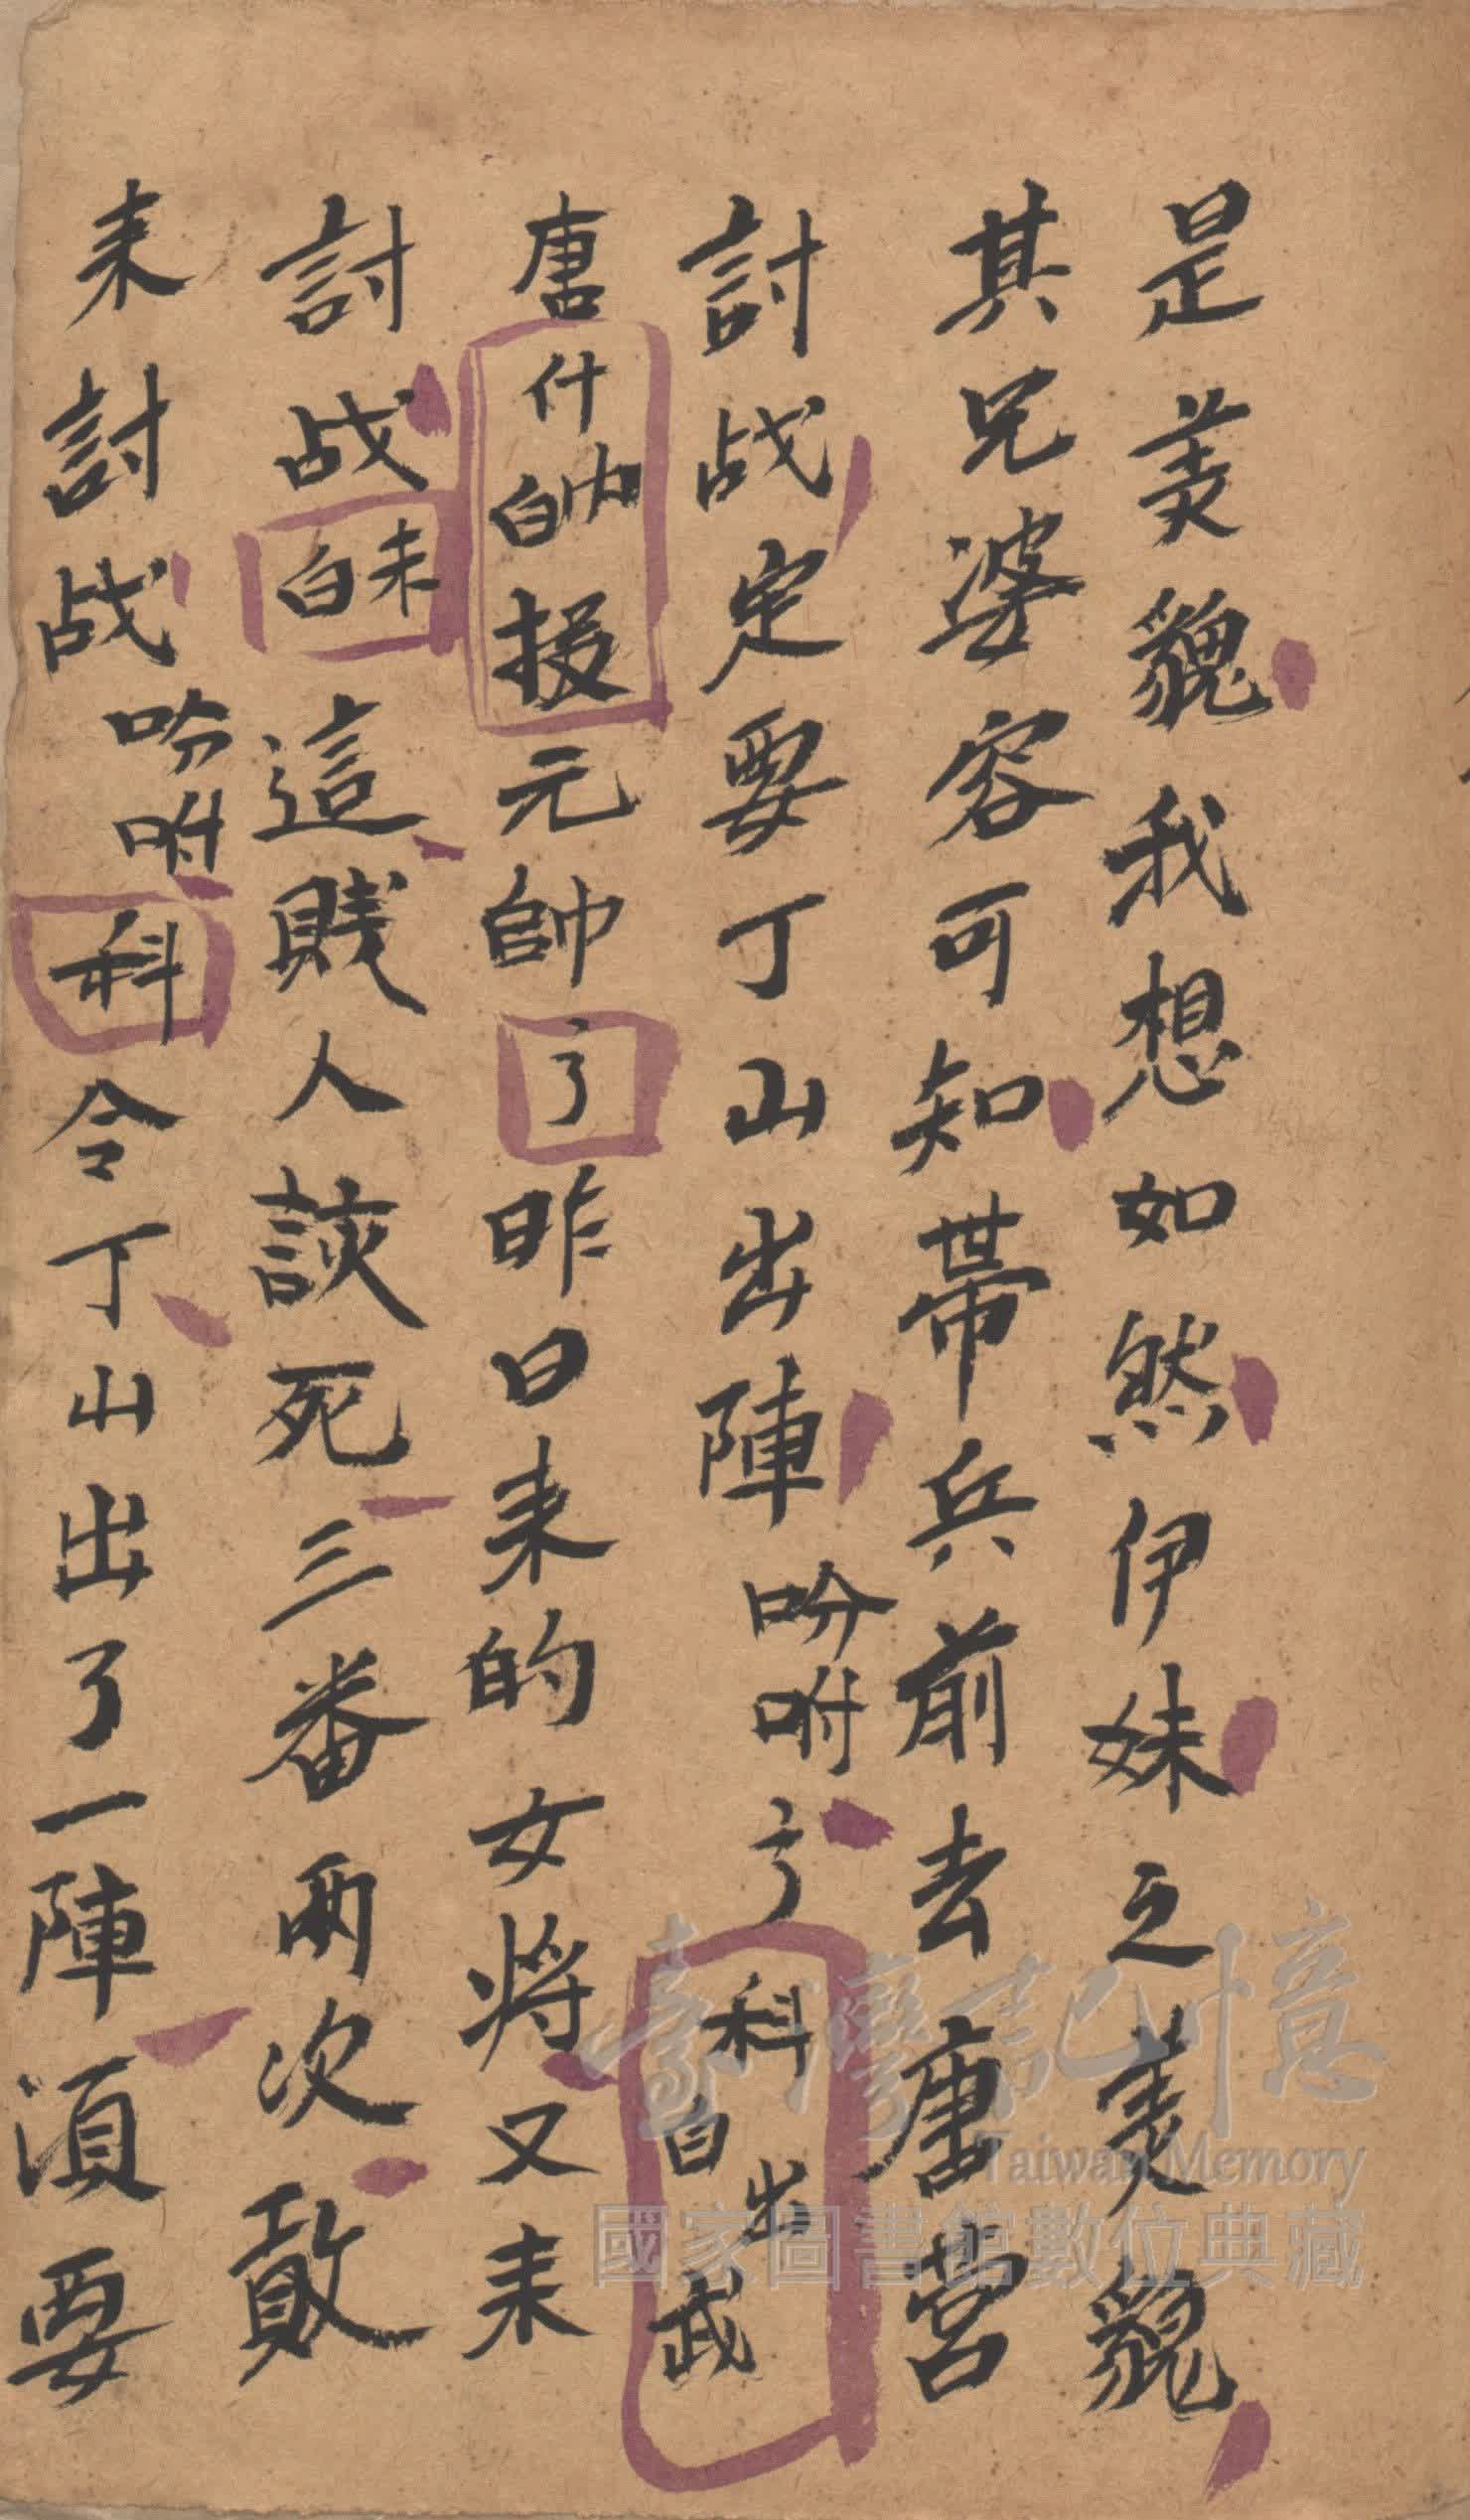 是美貌我想如然伊妹之美貌
其兄婆容可知帶兵前去唐营
討战定要丁山出陣吩咐了科白出武
唐什白内报元帥了昨日来的女將又来
討战白未這賤人該死三番兩次敢
来討战吩咐科令丁山出了一陣須要
臺灣記憶
Taiwan Memory
國家圖書館數位典藏